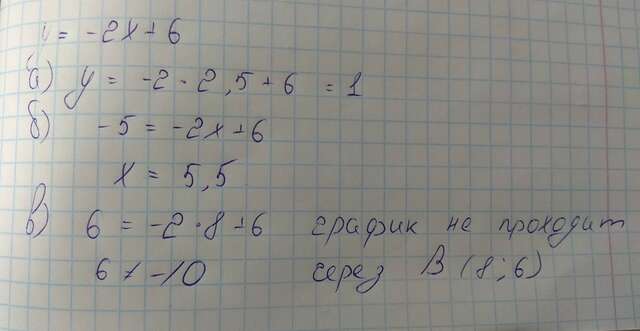 y = -2x+6
а) y = -2 · 2,5+6 = 1
б) -5 = -2x+6
x = 5,5
в) 6 = -2·8+6 график не проходит
6 ≠ -10 через B (8;6)